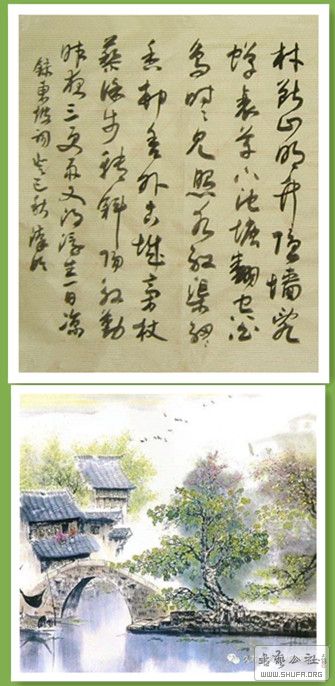 林斷山明竹隐墙亂
蝉衰草小池塘翻空白
鸟时时见照水红蕖细细
香村舍外古城旁杖
藜徐步转斜阳殷勤
昨夜三更雨又得浮生一日凉
録東坡词 巳秋
书法公社
WWW.SHUFA.ORG